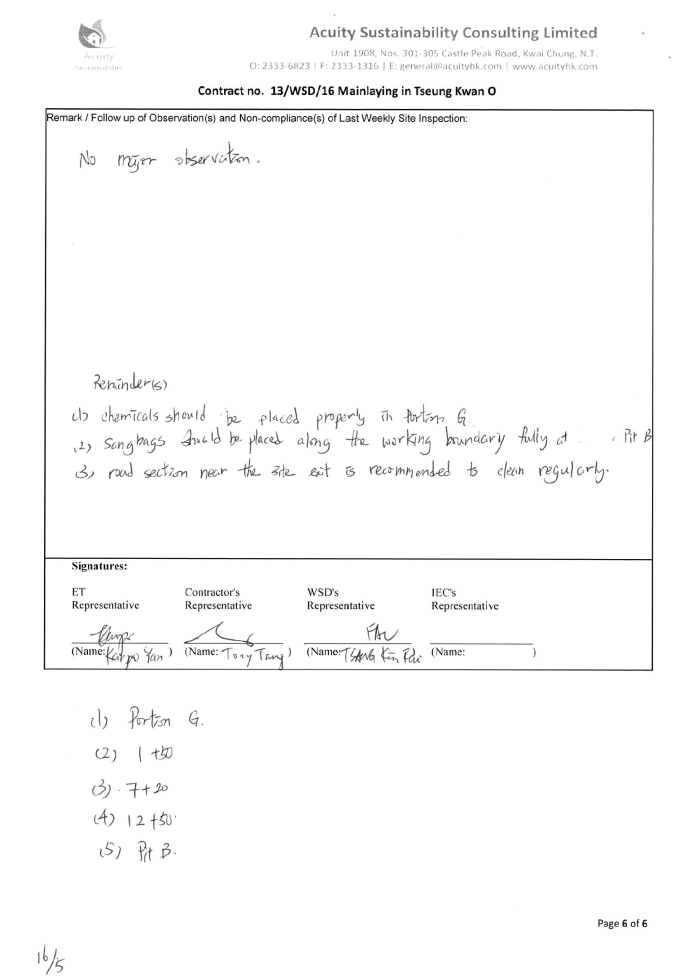 Acuity Sustainability Consulting Limited
Unit 1908, Nos. 301-305 Castle Peak Road, Kwai Chung, N.T.
O: 2333-6823 | F: 2333-1316 | E: general@acuityhk.com | www.acuityhk.com
Acuity
Sustainability
Contract no. 13/WSD/16 Mainlaying in Tseung Kwan O
Remark / Follow up of Observation(s) and Non-compliance(s) of Last Weekly Site Inspection:
No major observation.
Reminder(s)
(1) chemicals should be placed properly in Portion G
(2) Sangbags should be placed along the working boundary fully at Pit B
(3) road section near the site exit is recommended to clean regularly.
Signatures:
ET Contractor's WSD's IEC's
Representative Representative Representative Representative
(Name: Yan) (Name: Tony Tang) (Name: TSANG Kin (Name: )
(1) Portion G.
(2) 1+50
(3) 7+20
(4) 12+50
(5) Pit B.
Page 6 of 6
16/5